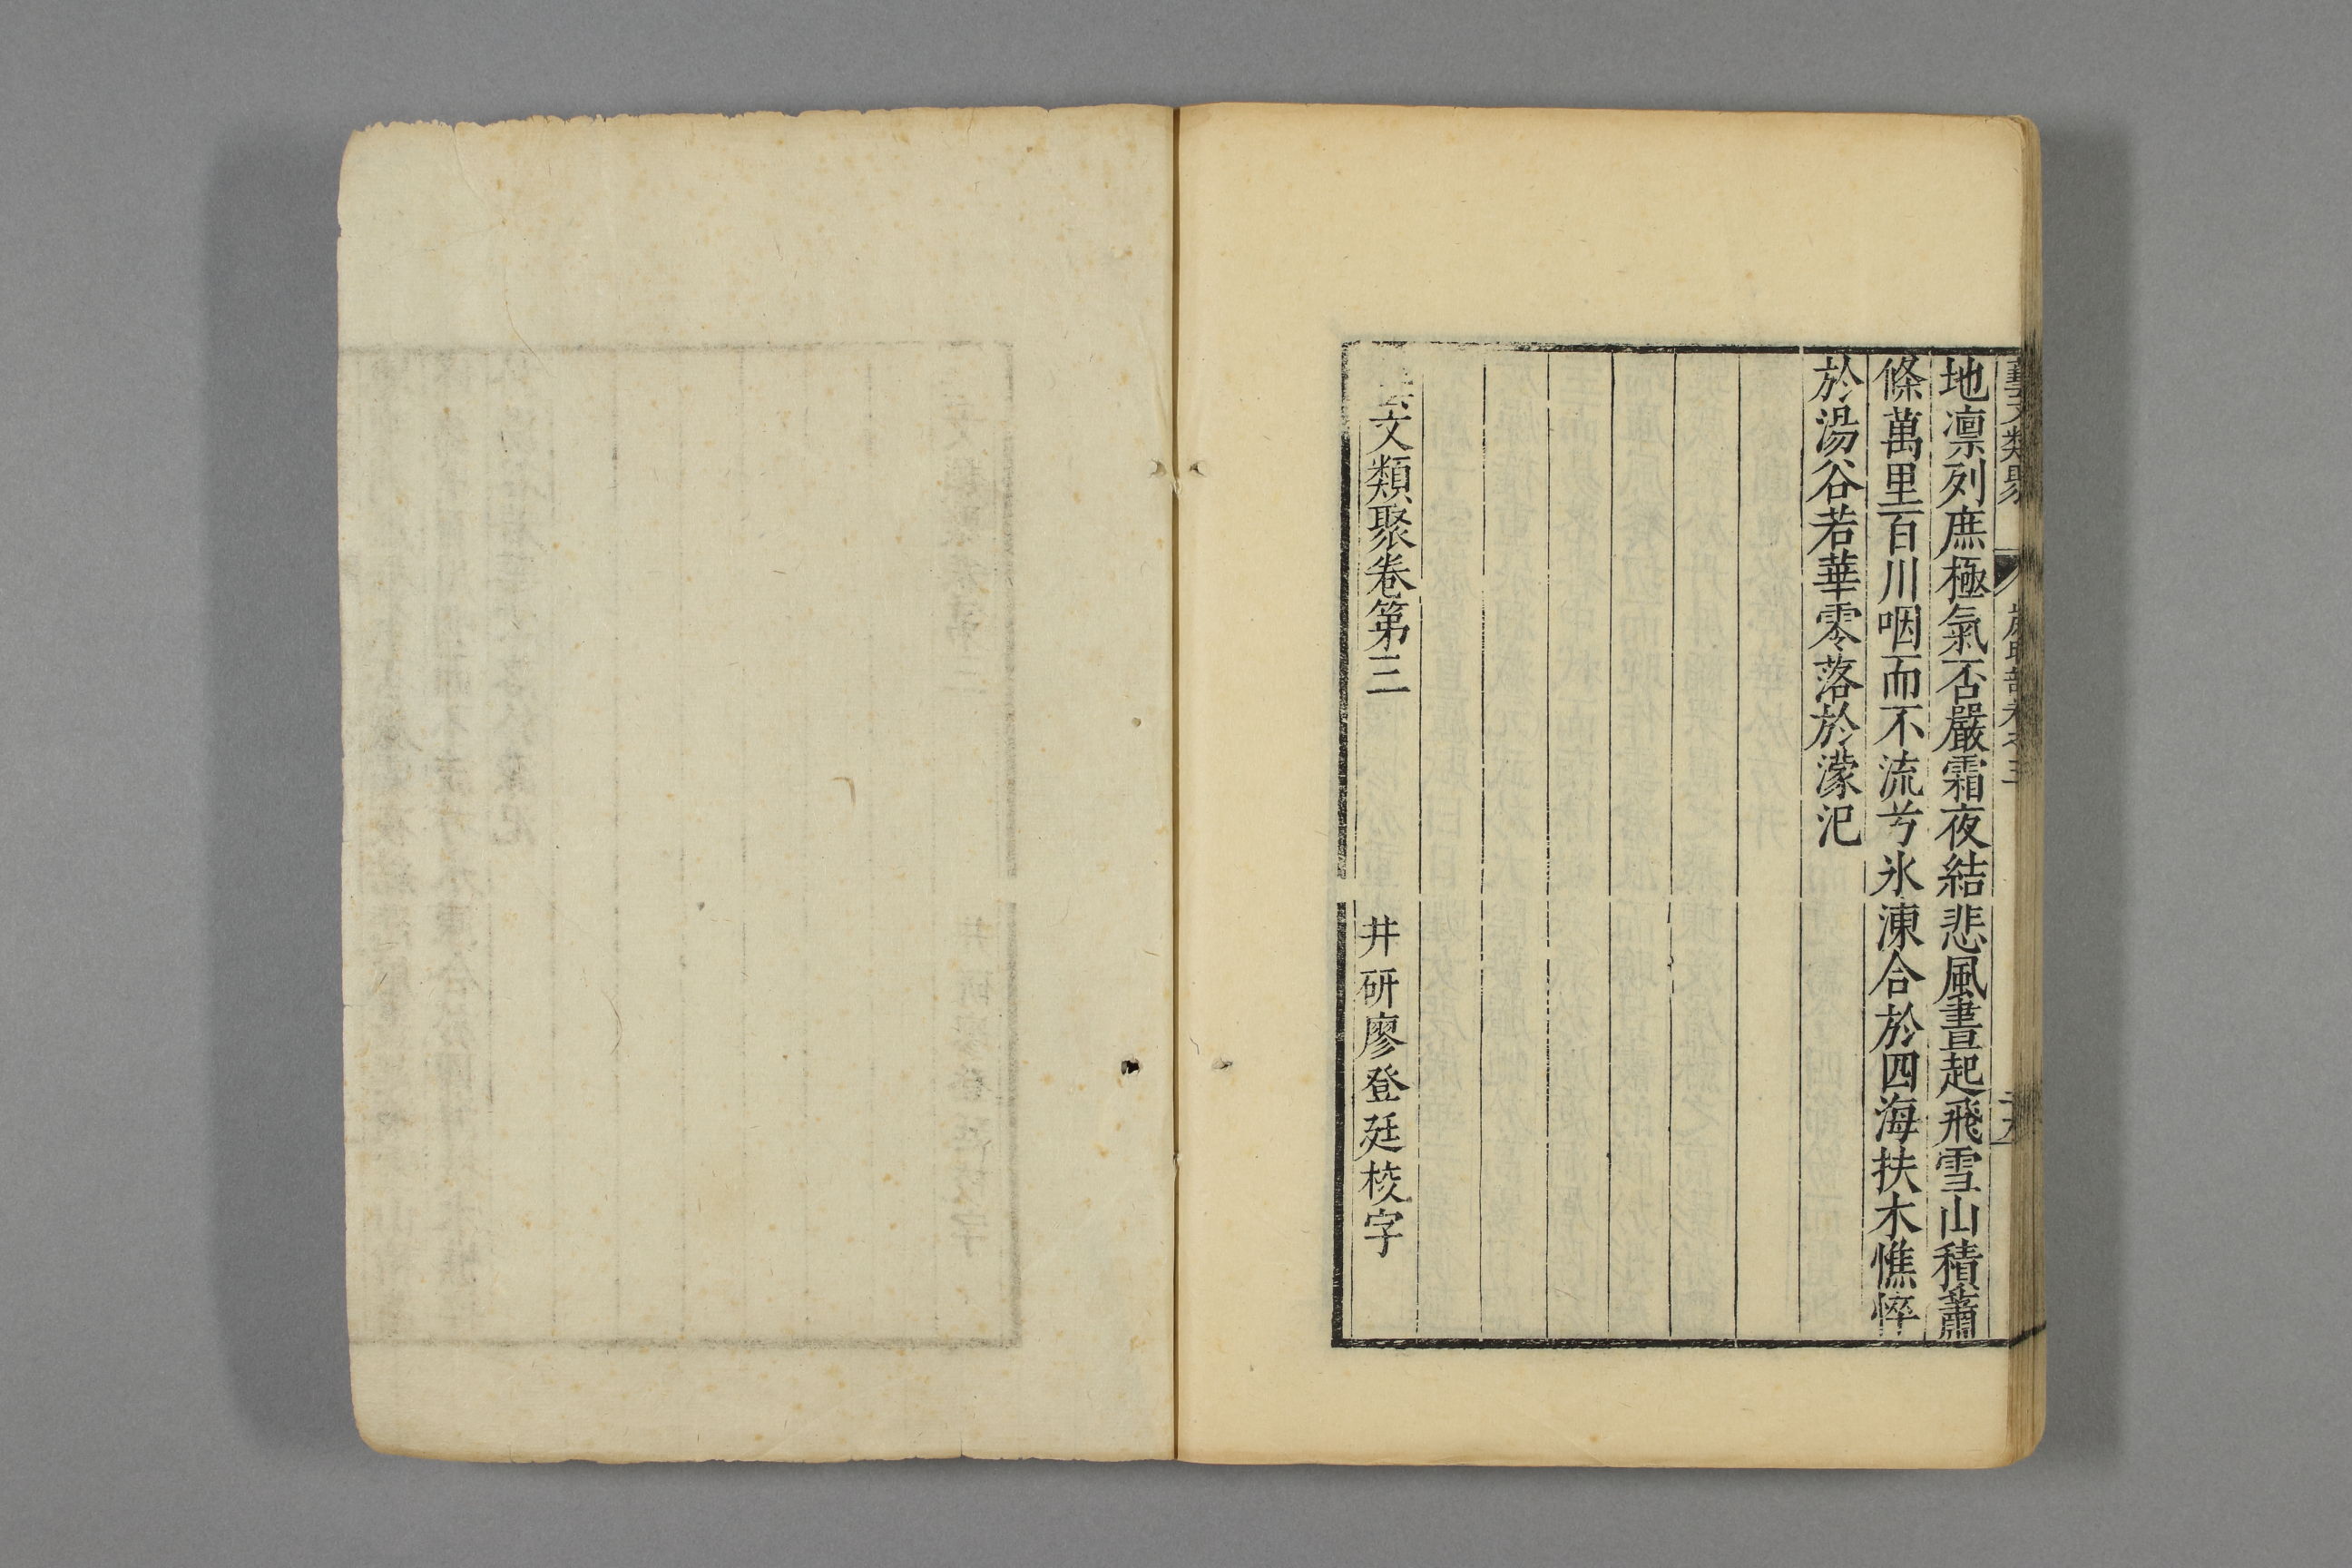 藝文類聚 歲時部卷之三
地凛列庶極氣否嚴霜夜結悲風晝起飛雪山積蕭
條萬里百川咽而不流兮氷凍合於四海扶木憔悴
於湯谷若華零落於濛汜
文類聚卷第三
井研廖登廷校字